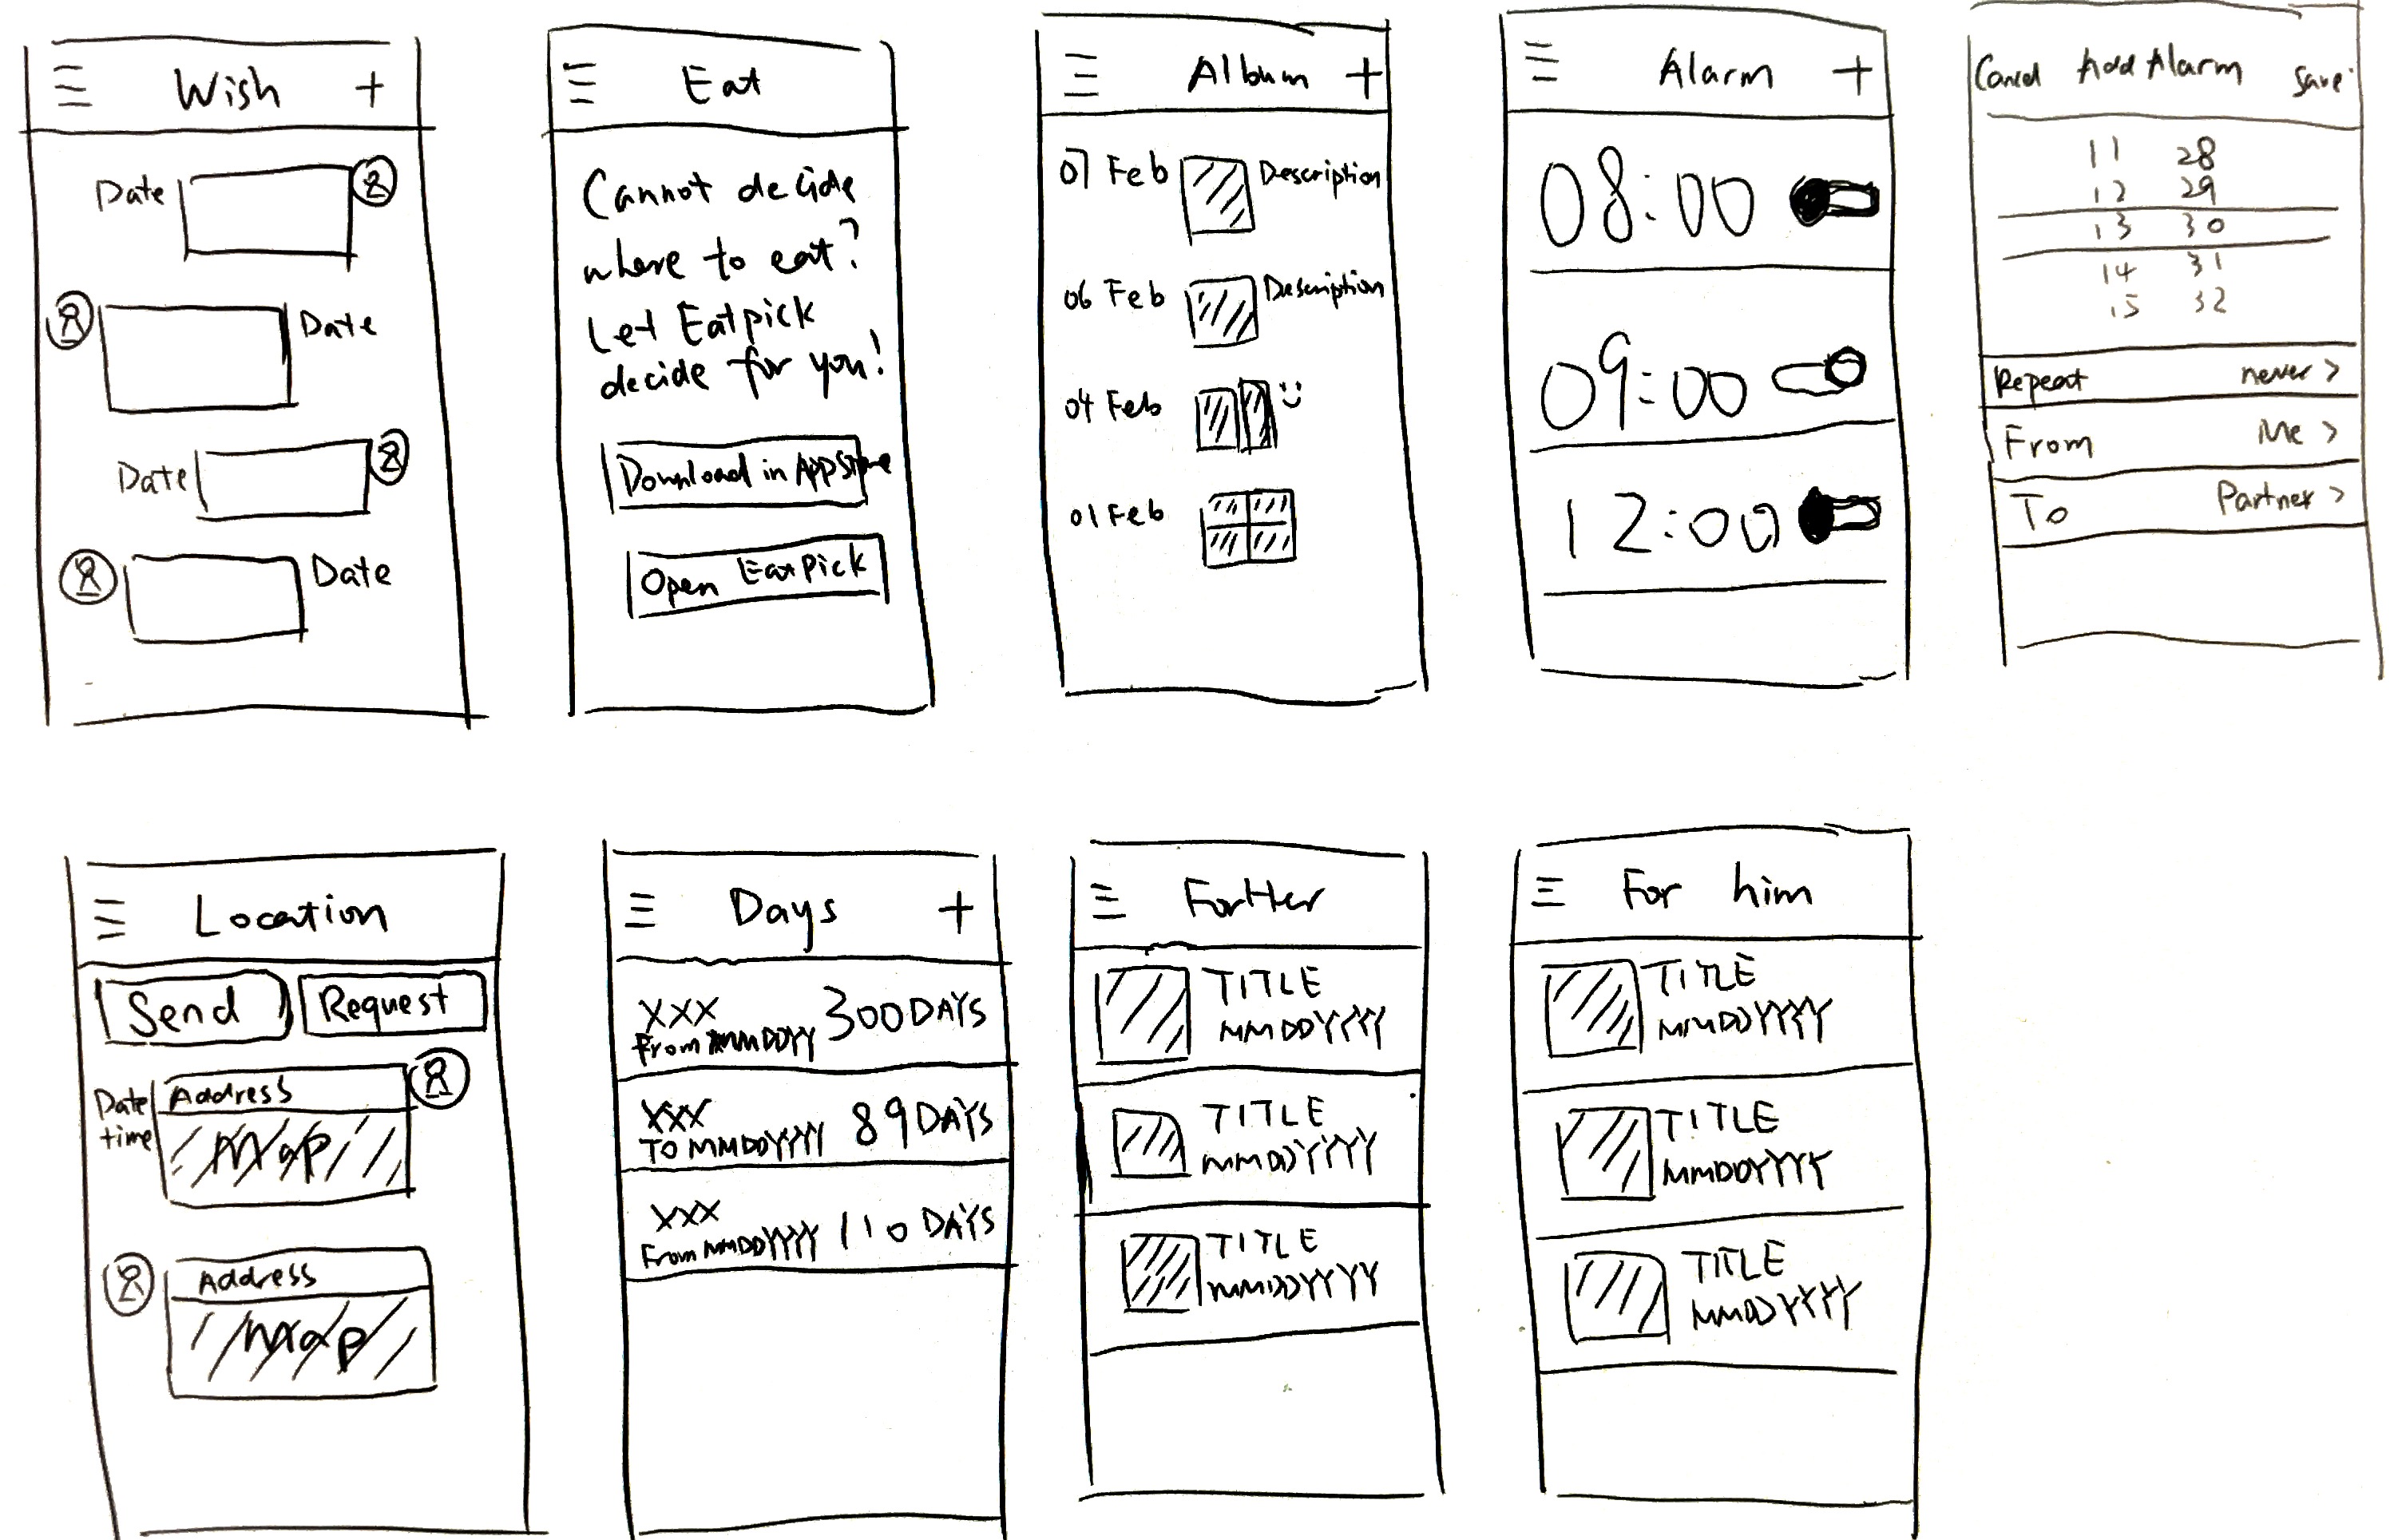 Wish +
Date
Date
Date
Date
Eat
Cannot decide
where to eat?
Let Eatpick
decide for you!
Download in AppStore
Open EatPick
Album +
07 Feb Description
06 Feb Description
04 Feb
01 Feb
Alarm +
08:00
09:00
12:00
Cancel Add Alarm Save
11 28
12 29
13 30
14 31
15 32
Repeat never >
From Me >
To Partner >
Location
Send Request
Date
time
Address
Map
Address
Map
Days +
XXX 300 DAYS
From MMDDYY
XXX 89 DAYS
TO MMDDYYYY
XXX 110 DAYS
From MMDDYYYY
For Her
TITLE
MMDDYYYY
TITLE
MMDDYYYY
TITLE
MMDDYYYY
For him
TITLE
MMDDYYYY
TITLE
MMDDYYYY
TITLE
MMDDYYYY